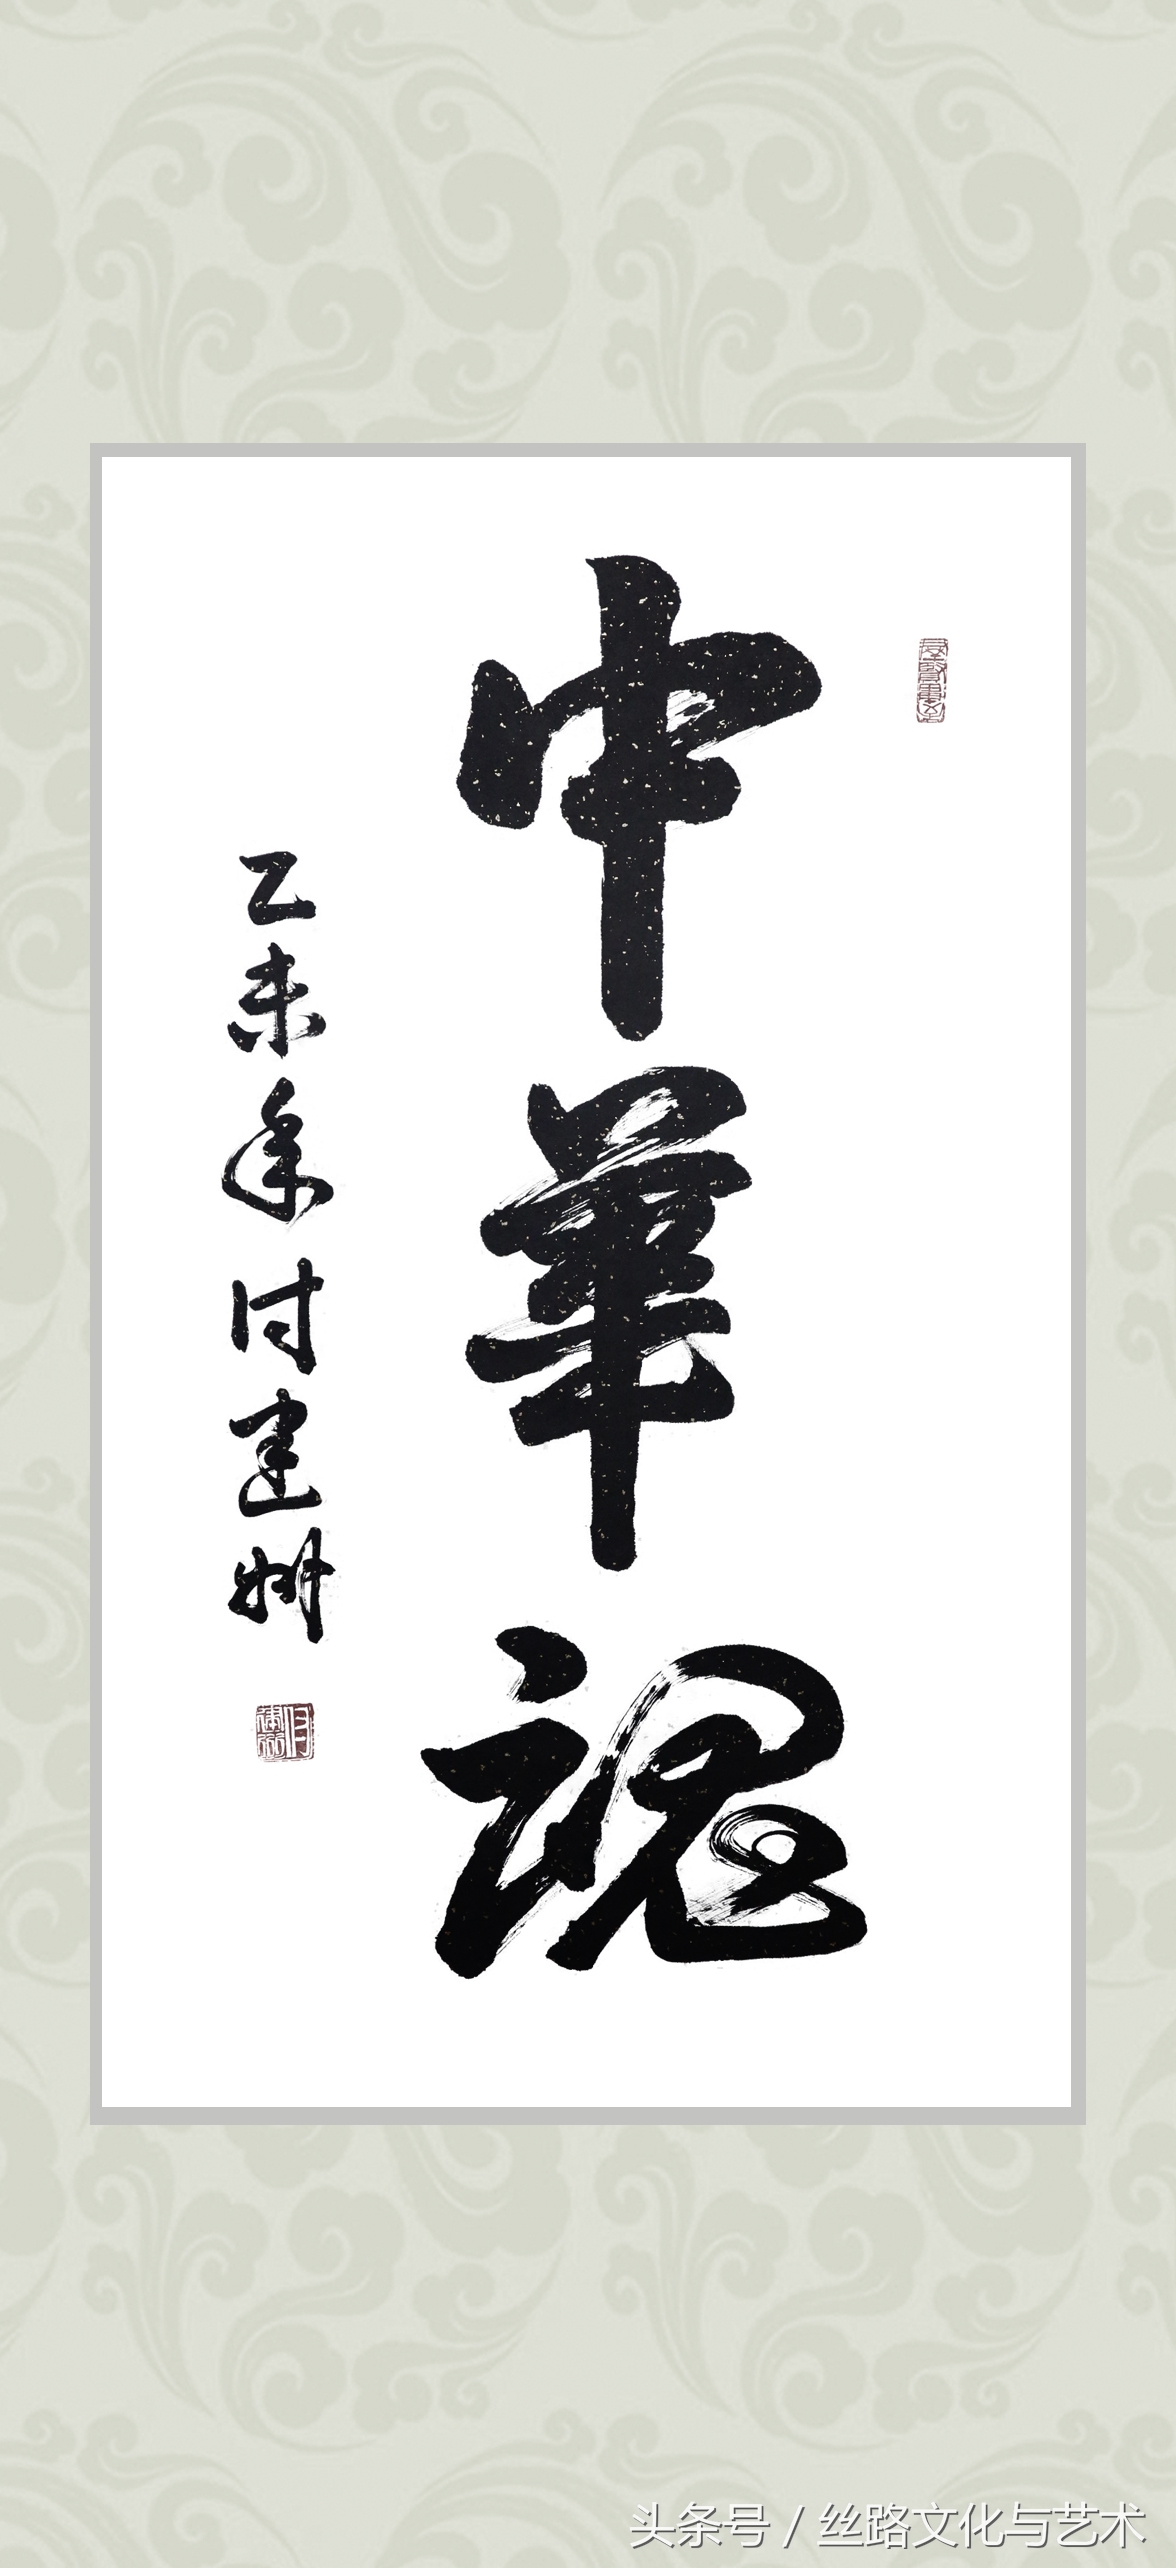 中華魂
乙未年付建州
头条号 / 丝路文化与艺术